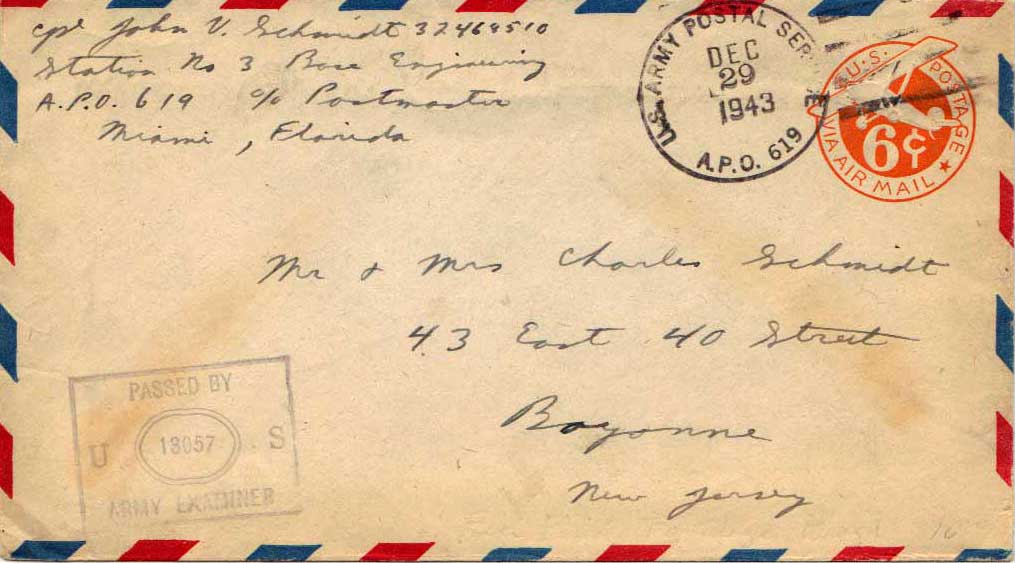 Cpl John V. Schmidt 32469510
Station No 3 Base Engineering
A.P.O. 619 c/o Postmaster
Miami, Florida
U.S. ARMY POSTAL SERVICE
DEC
29
1943
A.P.O. 619
U.S. POSTAGE
6¢
VIA AIR MAIL
Mr & Mrs Charles Schmidt
43 East 40 Street
Bayonne
New Jersey
PASSED BY
U 13057 S
ARMY EXAMINER
16